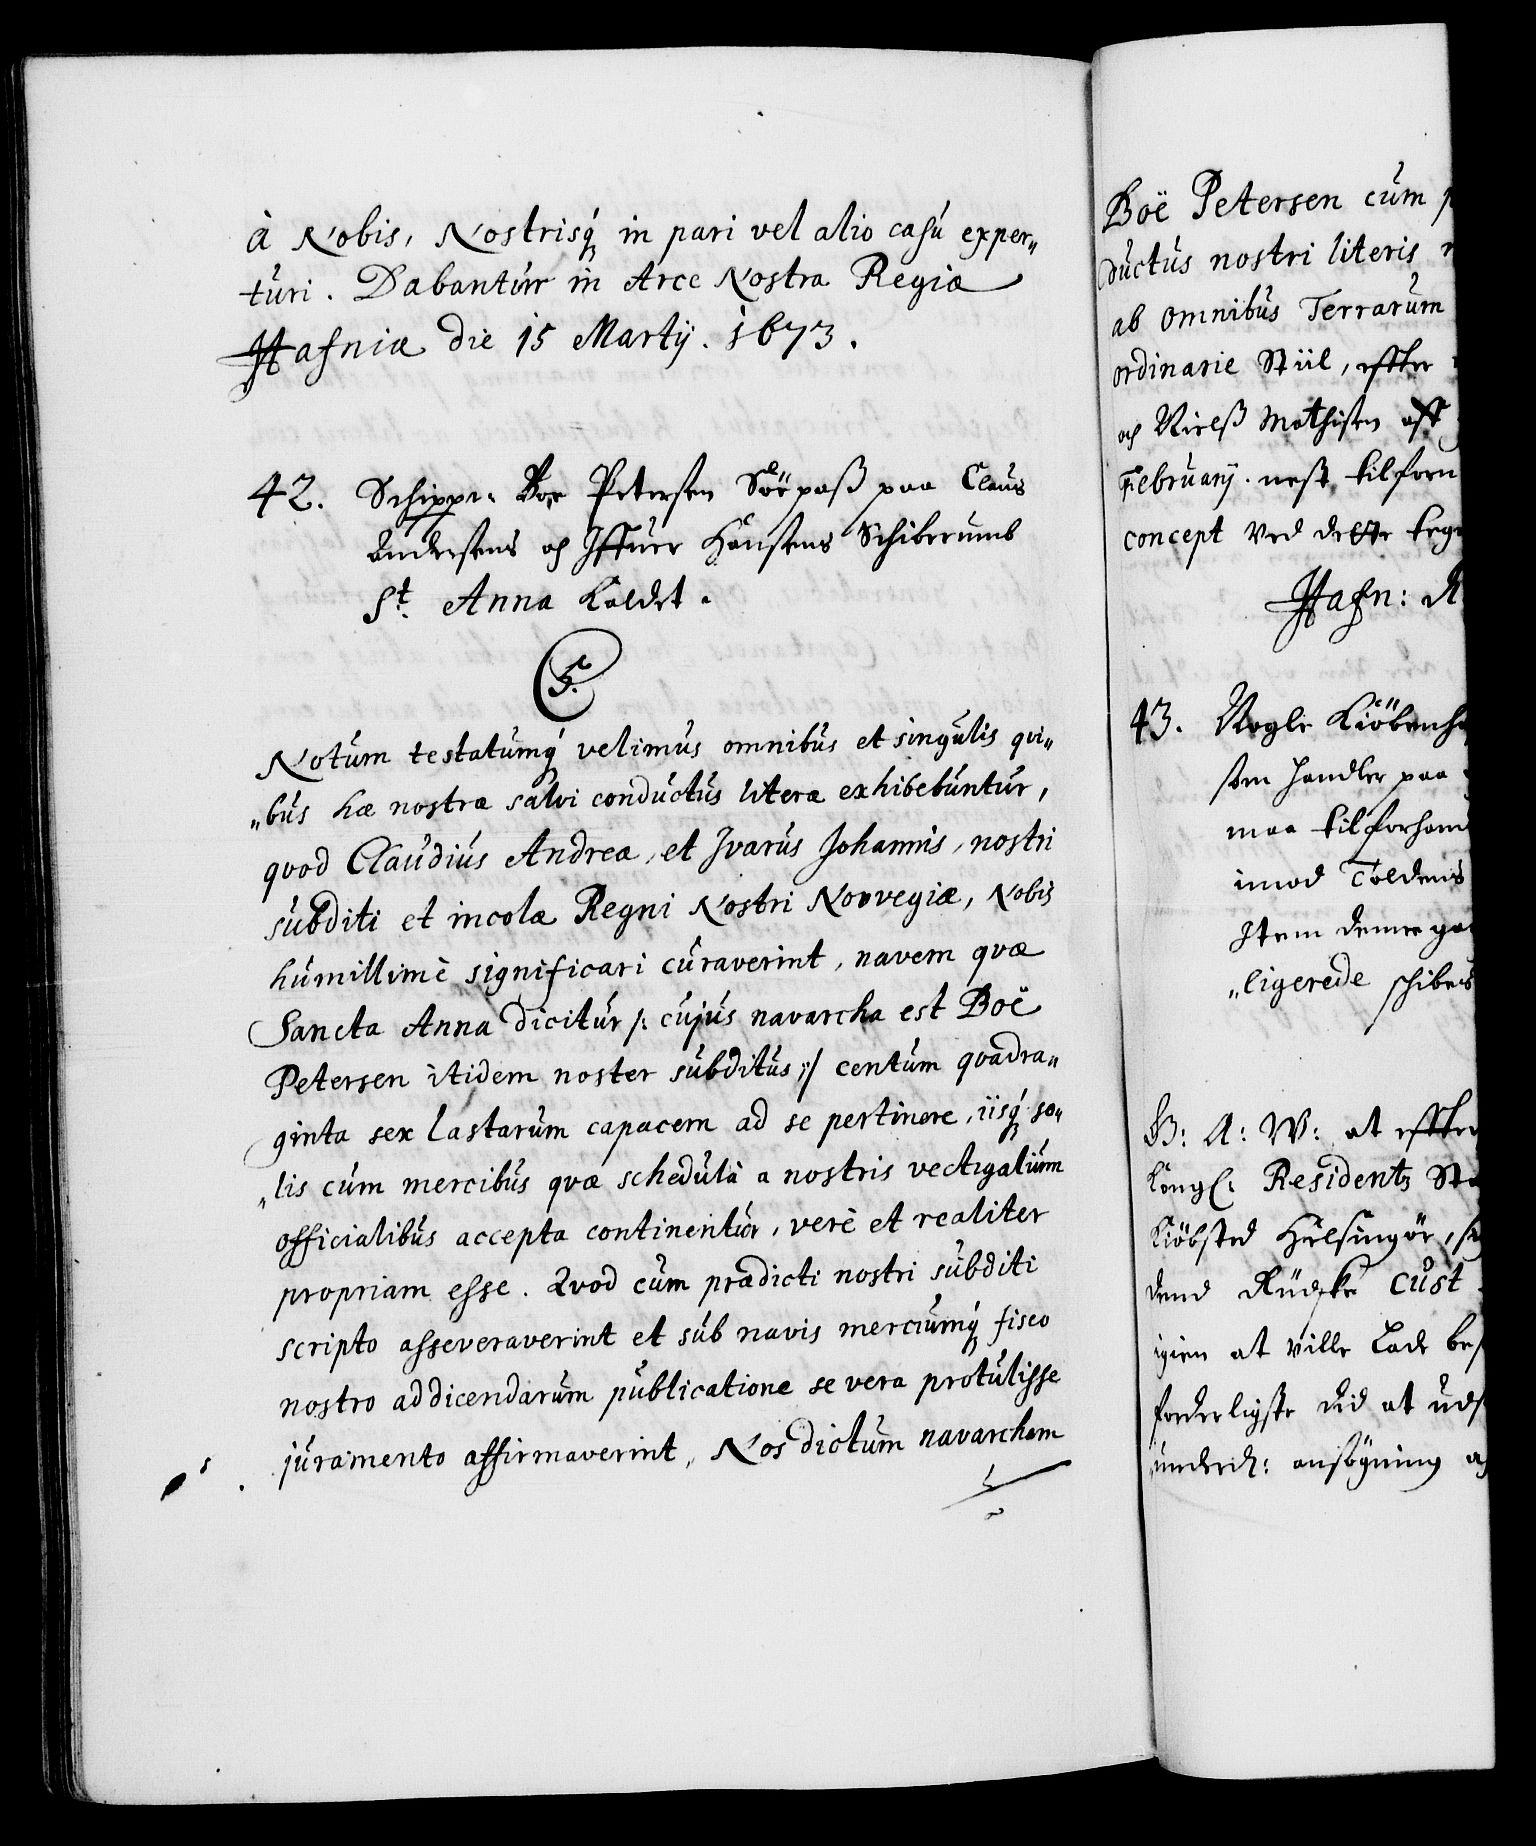 à Nobis, Nostrisq́ in pari vel alio casu exper„
turi. Dabantur in Arce Nostra Regia
Hafniæ die 15 Martij. 1673.
42. Schipper Boe Petersen Söepaß paa Claus
Andersens oc Iffuer Hansens Schiberumb
St. Anna kaldet.
C5.
Notum testatumq́ velimus omnibus et singulis qvi„
„bus hæ nostræ salvi conductus literæ exhibebuntur,
qvod Claudius Andreæ, et Ivarus Johannis, nostri
subditi et incolæ Regni Nostri Norvegiæ, Nobis
humillimè significari curaverint, navem qvæ
Sancta Anna dicitur /: cujus navarcha est Boë
Petersen itidem noster subditus :/ centum qvadra„
ginta sex lastarum capacem ad se pertinere, iisq́ so„
„lis cum mercibus qvæ schedulâ a nostris vectigalium
officialibus accepta continentur, verè et realiter
propriam esse. Qvod cum prædicti nostri subditi
scripto asseveraverint et sub navis merciumq́ fisco
nostro addicendarum publicatione se vera protulisse
juramento affirmaverint, Nos dictum navarcham
Boë Petersen cum
ductus nostri literis
ab omnibus Terrarum
ordinarie Stiil, effter
oc Nielß Mathisen aff
February. nest tilforn
concept ved dette
Hafn:
43. Nogle Kiöbenh
som handler paa
maa tilforhand
imod Toldens
Item denne
„ligerede schibes
G: A: W: at effter
Kongl: Residentz
Kiöbsted Helsingör,
dend Rüdske Cust
igien at ville lade
forderligste
underd: ansögning